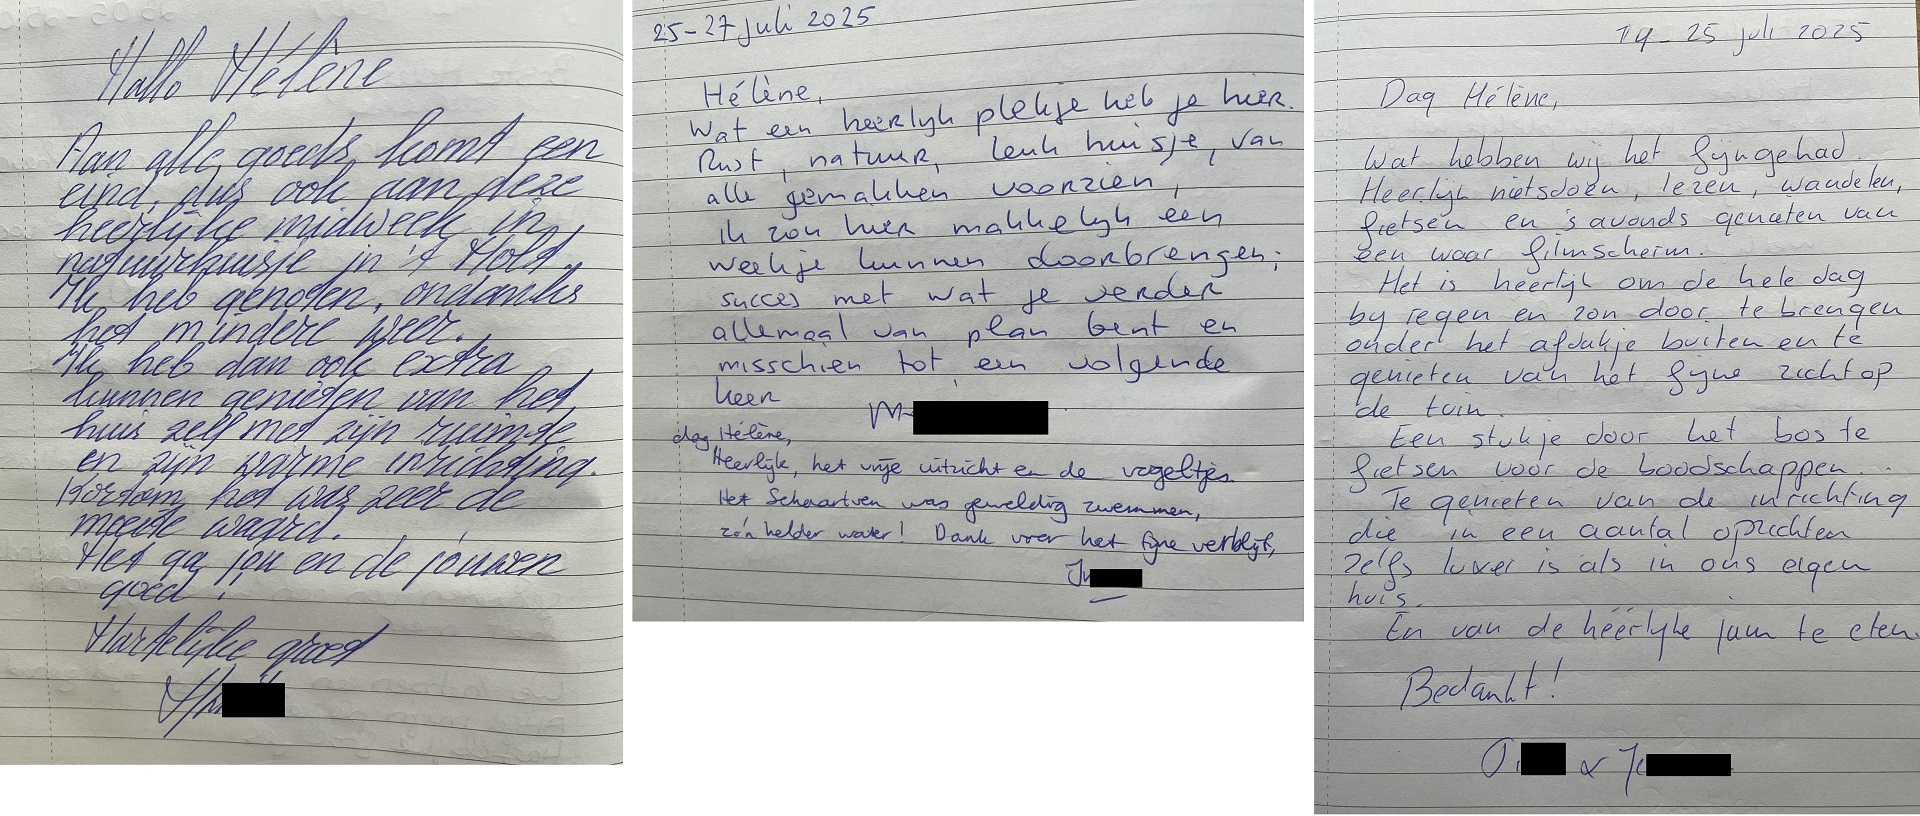 Hallo Hélène
Aan alle goeds komt een
eind, dus ook aan deze
heerlijke midweek in
natuurhuisje in 't Hold.
Ik heb genoten, ondanks
het mindere weer.
Ik heb dan ook extra
kunnen genieten van het
huis zelf met zijn ruimte
en zijn warme inrichting.
Kortom het was zeer de
moeite waard.
Het ga jou en de jouwen
goed!
Hartelijke groet
25-27 juli 2025
Hélène,
Wat een heerlijk plekje heb je hier.
Rust, natuur, leuk huisje, van
alle gemakken voorzien,
ik zou hier makkelijk een
weekje kunnen doorbrengen;
succes met wat je verder
allemaal van plan bent en
misschien tot een volgende
keer
M
dag Hélène,
Heerlijk, het vrije uitzicht en de vogeltjes.
Het Schaartven was geweldig zwemmen,
zo'n helder water! Dank voor het fijne verblijf,
19-25 juli 2025
Dag Hélène,
Wat hebben wij het fijn gehad.
Heerlijk nietsdoen, lezen, wandelen,
fietsen en 's avonds genieten van
een waar filmscherm.
Het is heerlijk om de hele dag
bij regen en zon door te brengen
onder het afdakje buiten en te
genieten van het fijne zicht op
de tuin.
Een stukje door het bos te
fietsen voor de boodschappen...
Te genieten van de inrichting
die in een aantal opzichten
zelfs luxer is als in ons eigen
huis.
En van de héérlijke jam te eten.
Bedankt!
O. & J